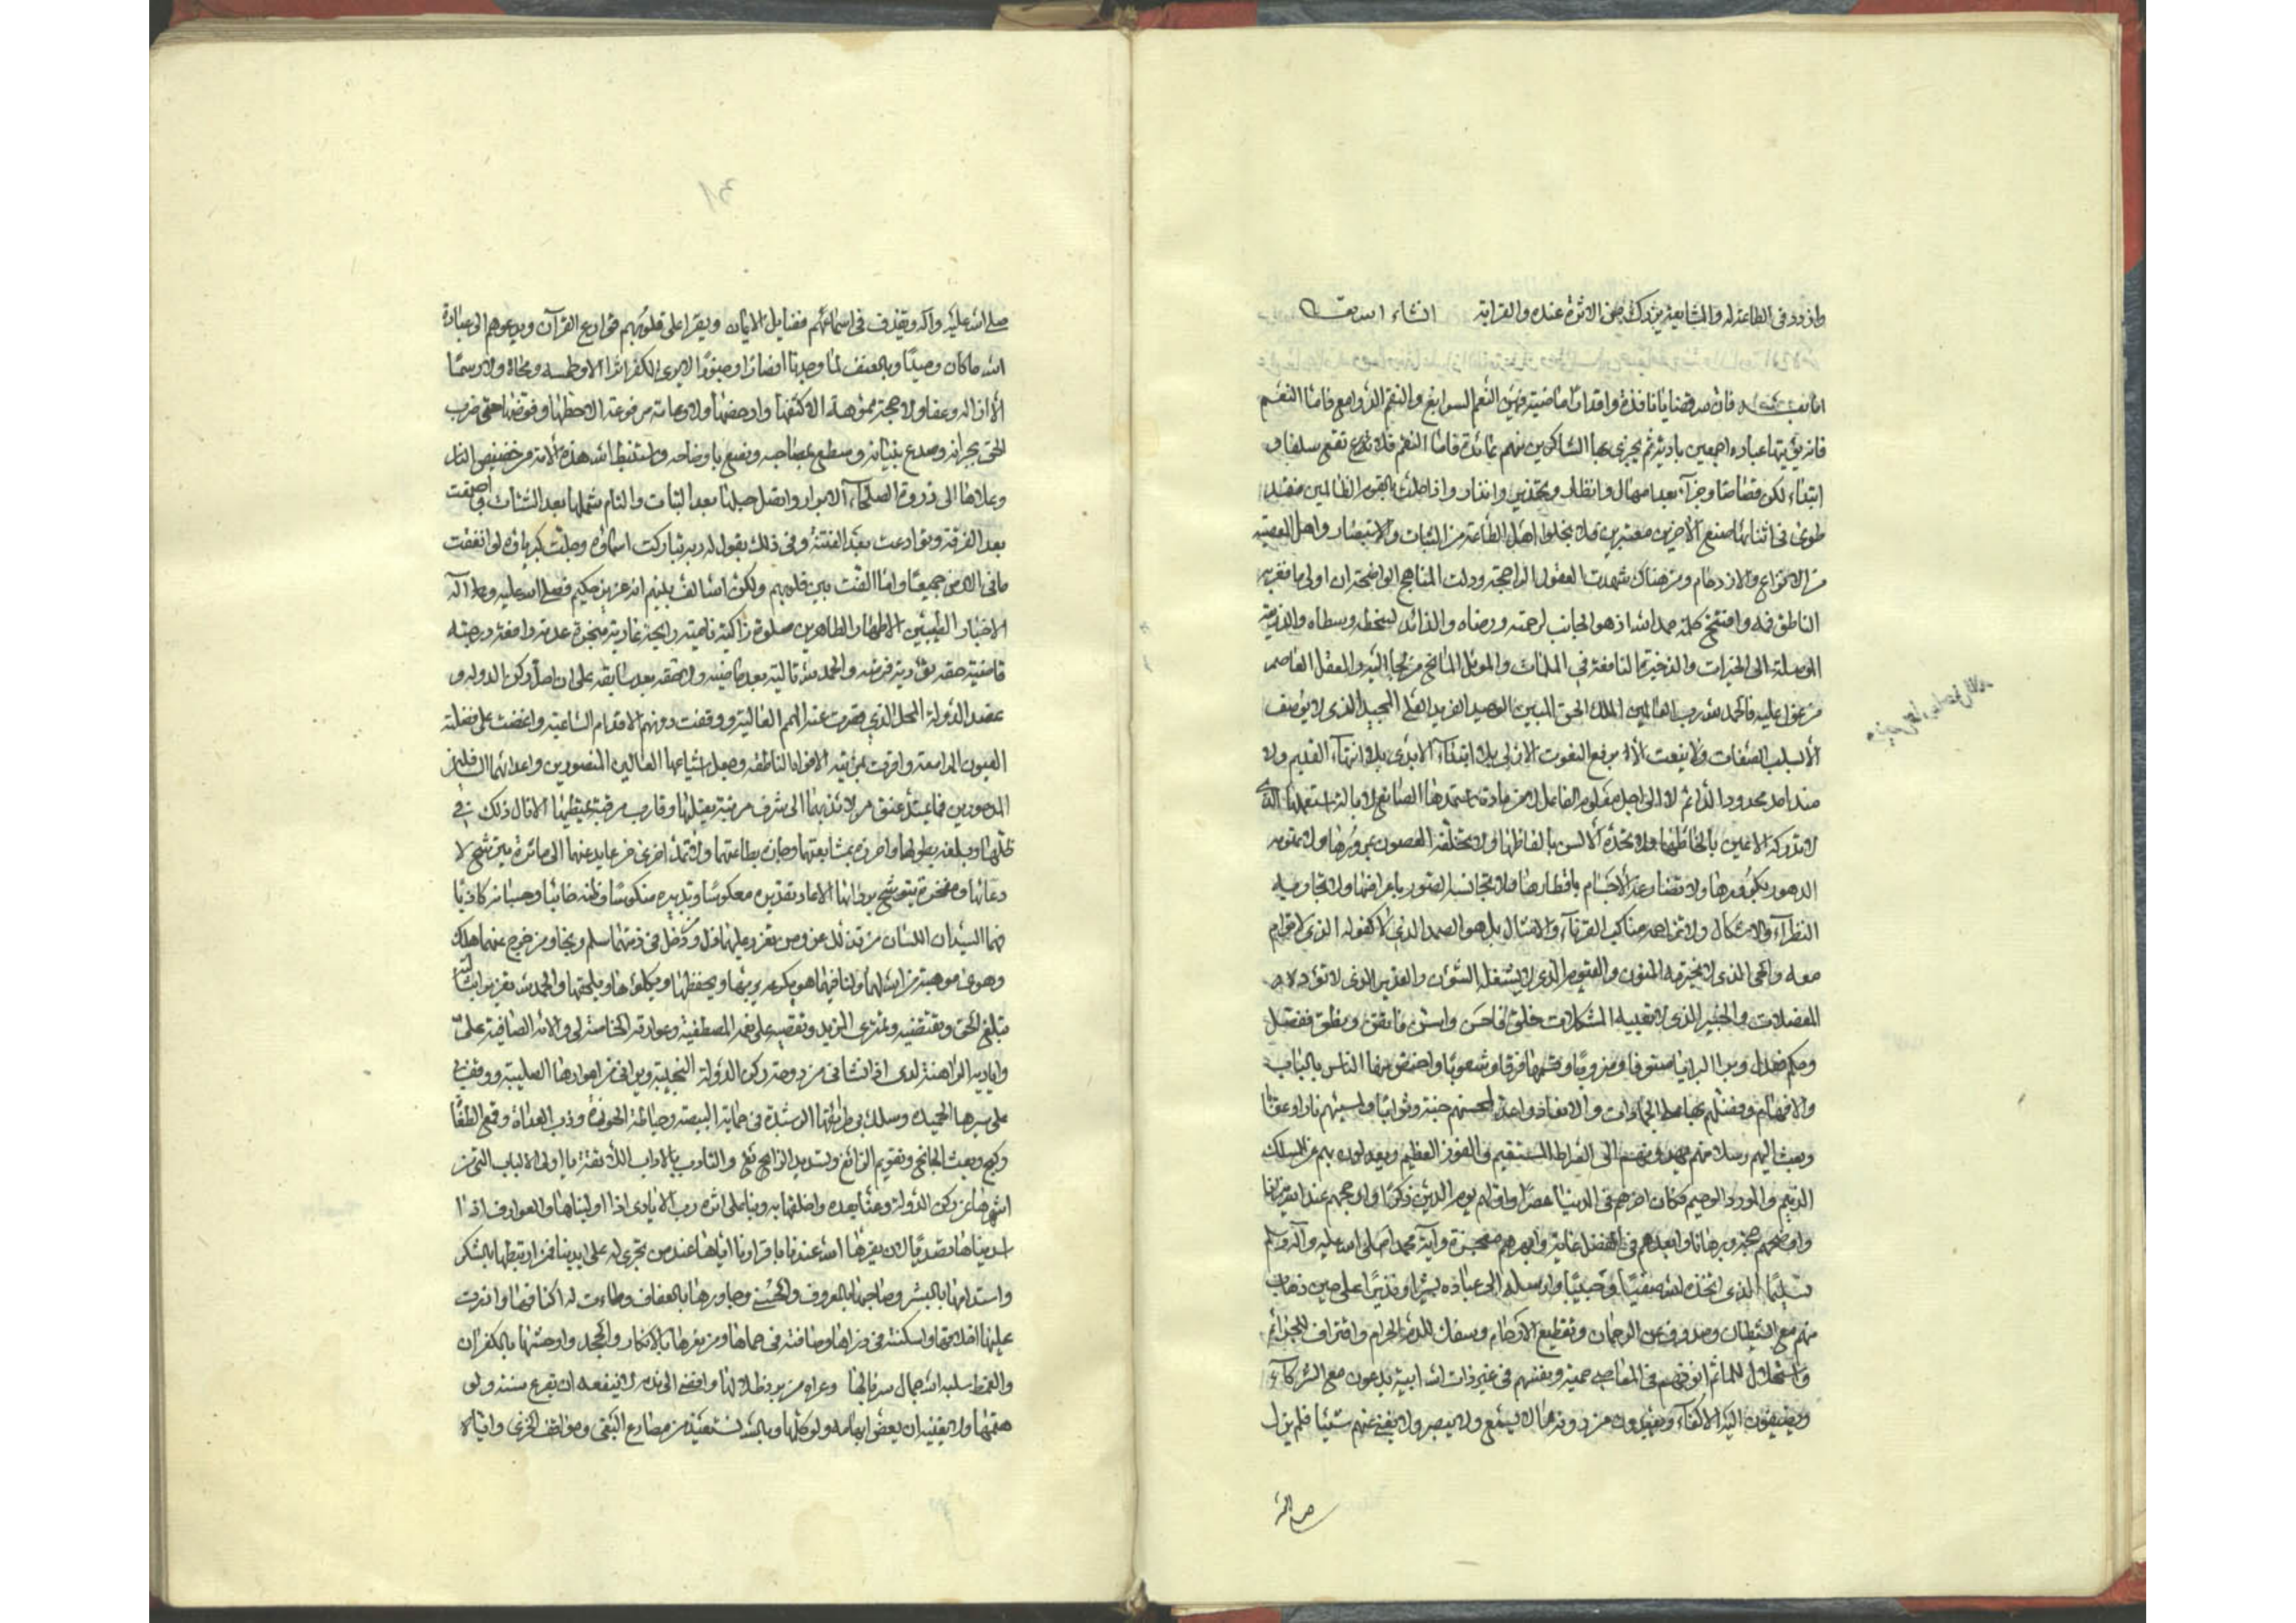 وازدد في الطاعة له والمشايعة يزدك من الاثرة عنده والقرابة انشاء الله تعالى
اما بعد فان لله قضايا نافذة واقدارا ماضية فهن النعم السوابغ والنقم الدوامغ فاما النعم
فانه يؤتيها عباده اجمعين بادية ثم يجزي بها الشاكرين منهم عائدة فاما النقم فلا تقع سلفا و
ابتداء لكن قصاصا وجزآء بعد امهال وانظار وتحذير وانذار واذا حلت بالقوم الظالمين فقد
طوى في اثنائها صنع لآخرين معتبرين فلا يخلوا اهل الطاعة من الثبات والاستبصار واهل المعصية
من الاقلاع والازدجام ومن هناك شهدت العقول الراجحة ودلت المناهج الواضحة ان اولى ما فغر به
الناطق فمه وافتتح كلمه حمد الله اذ هو الجانب لرحمته ورضاه والذائد لسخطه وسطاه والذريعة
الموصلة الى الخيرات والذخيرة النافعة في الملمات والموئل المانع من لجأ اليه والمعقل العاصم
من عول عليه فالحمد لله رب العالمين الملك الحق المبين الوحيد الفريد العلي المجيد الذي لا يوصف
الا بسلب الصفات ولا ينعت الا برفع النعوت الازلي بلا ابتداء الابدي بلا انتهاء القديم ولا
منذ امد محدود الدائم لا الى اجل معلوم الفاعل لا من مادة استمدها الصانع لا بالة استعملها الذي
لا تدركه الاعين بالحاظها ولا تحده الالسن بالفاظها ولا تخلقه العصور بمرورها ولا تهرمه
الدهور بكرورها ولا تضارعه الاجسام باقطارها ولا تجانسه الصور باعراضها ولا تجاريه
النظرآء والاشكال ولا تزاحمه مناكب القرنآء والامثال بل هو الصمد الذي لا كفو له الفذ الذي لا توأم
معه والحي الذي لا تخترمه المنون والقيوم الذي لا تشغله الشؤن والقدير الذي لا تؤده
المعضلات والخبير الذي لا تعييه المشكلات خلق فاحسن واسس فاتقن ونطق ففصل
وحكم فعدل وبرأ البرايا صنوفا وضروبا وقسمها فرقا وشعوبا واختص منها الناس بالالباب
والافهام وفضلهم بها على الجمادات والانعام واعد لمحسنهم جنة وثوابا ولمسيئهم نارا وعقابا
وبعث اليهم رسلا منهم يهدونهم الى الصراط المستقيم والفوز العظيم ويعدلون بهم عن المسلك
الذميم والمورد الوخيم فكان اخرهم في الدنيا عصرا واولهم يوم الدين ذكرا وارجحهم عند الله ميزانا
واوضحهم حجة وبرهانا وابعدهم في الفضل غاية وابهرهم معجزة وآية محمد صلى الله عليه وآله وسلم
تسليما الذي اتخذه الله صفيا وحبيبا وارسله الى عباده بشيرا ونذيرا على حين ذهاب
منهم مع الشيطان وصدوف عن الرحمان وتقطيع الارحام وسفك للدم الحرام واقتراف للجرائم
واستحلال للماثم انوفهم في المعاصي حمية ونفوسهم في غير ذات الله ابية يدعون مع الشركآء
ويضيفون اليه الاكفآء ويعبدون من دونه ما لا يسمع ولا يبصر ولا يغني عنهم شيئا فلم يزل
صلى الله
صلى الله عليه وآله يقذف في اسماعهم فضايل الايمان ويقرا على قلوبهم قوارع القرآن ويدعوهم الى عبادة
الله ما كان وحيدا وبالعنف لما وجد انصارا وجنودا لا يرى للكفر اثرا الا وطمسه ومحاه ولا رسما
الا ازاله وعفاه ولا حجة مموهة الا كشفها وادحضها ولا دعامة مرفوعة الا حطها وقوضها حتى ضرب
الحق بجرانه وصدع ببيانه وسطع بمصاحبه ونصع باوضاحه واستنبط الله هذه الامة من حضيض النار
وعلاها الى ذروة الصلحآء الابرار واتصل حبلها بعد البتات والتام شملها بعد الشتات واجتمعت
بعد الفرقة وتوادعت بعد الفتنة وفي ذلك يقول له ربه تباركت اسماؤه وجلت كبرياؤه لو انفقت
ما في الارض جميعا ما الفت بين قلوبهم ولكن الله الف بينهم انه عزيز حكيم فصلى الله عليه وعلى آله
الاخيار الطيبين الاطهار الطاهرين صلوة زاكية نامية رايحة غادية منجزة عدته رافعة درجته
قاضية حقه مؤدية فرضه والحمد لله تالية بعد ماضية ولاحقة بعد سابقة على ان احل ركن الدوله و
عضد الدولة المحل الذي قصرت عنه الهمم العالية ووقفت دونه الاقدام الساعية واغضت على فضله
العيون الرامقة واقرت بمزيته الافواه الناطقه وجعل اشياعها الغالبين المنصورين واعدائهما السافلين
المدحورين فما يمتد عنق من لائذ بهما الى شرف مرتبة يعتليها وقارب مرقبة يمتطيها الا نال ذلك في
ظلهما وبلغه بطولهما واحرزه بمشايعتهما وحازه بطاعتهما ولا تمتد اخرى من عايد عنهما الى ماثرة يترشح لا
دعائها ومفخرة يتوشح بردائها الا عاد تقديره معكوسا وتدبيره منكوسا وظنه خائبا وحسبانه كاذبا
فهما السيدان اللذان من تذلل لهما عز ومن تعزز عليهما ذل ودخل في ذمتهما سلم ونجا ومن خرج عنهما هلك
وهوى موهبة من الله لهما ولنا فيهما هو بكرمه يربها ويحفظها ويكلؤها ويلحقها والحمد لله تعزيزا بشا
مبلغ الحق وتقتضيه وتمتري المزيد وتقتضيه على نعمه المصطفية وعوارفه الخاصة لي والائه الضافية علي
واياديه الراهنة لدي اذ انشاني من دوحة ركن الدولة النجيبة وبراني من اعوادها الصليبة ووقفني
على سيرها الحميدة وسلك بي طرائقها الرشيدة في حماية البيضة وحياطة الحوزة وذب العداة وقمع الطغاة
وكبح وبعث الجانح وتقويم الزائغ وتسديد الرائغ والتأدب بالاداب اللائقة يا اولي الالباب التي من
اشهرها عن ركن الدولة وعنا بعده واخلقها به وبنا على اثره رب الايادي اذا اوليناها والعوارف اذا
اسديناها تصديا لان يقرها الله عندنا باقرارنا اياها عند من تجري له على ايدينا فمن ارتبطها بالشكر
واستدامها بالبشر وصاحبها بالمعروف والحسنى وجاورها بالعفاف وطاءت له اكنافها وانثرت
عليها اخلافها واسكنته في ذراها وضافته في حماها ومن نفرها بالانكار والجحد واوحشها بالكفران
والغمط سلبه الله جمال سربالها وعراه من برد ظلالها وافضى الى ندم لا ينفعه ان يقرع سنه ولو
هتمها ولا يغنيه ان يعض ابهامه ولو كلمها وبالله نستعيذ من مصارع البغي ومواقف الخزي واياه